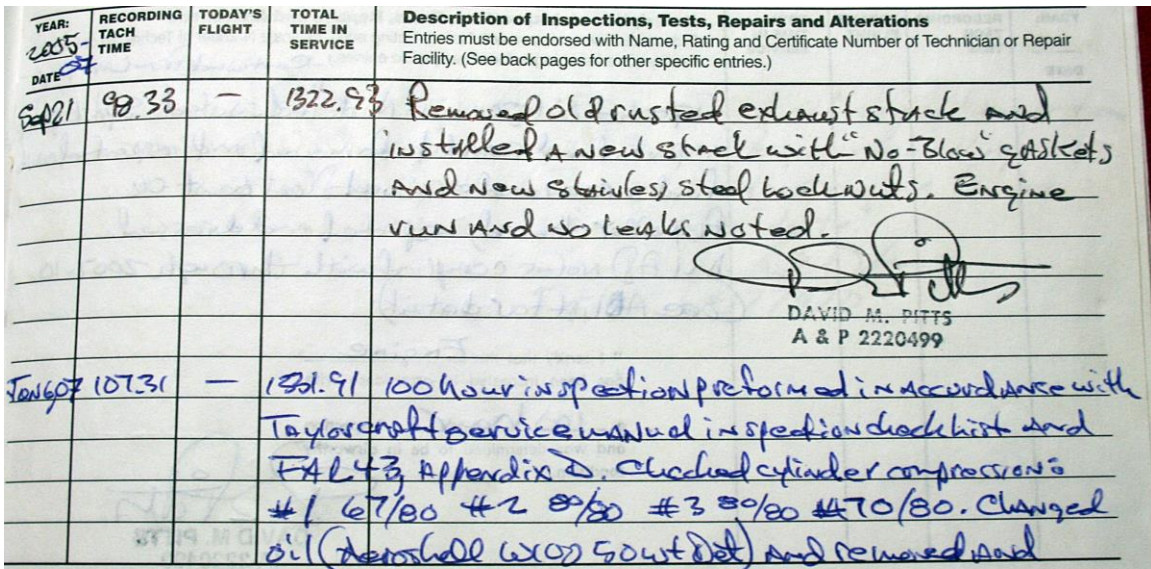 YEAR: 2005-07
DATE
RECORDING TACH TIME
TODAY'S FLIGHT
TOTAL TIME IN SERVICE
Description of Inspections, Tests, Repairs and Alterations
Entries must be endorsed with Name, Rating and Certificate Number of Technician or Repair
Facility. (See back pages for other specific entries.)
Sep21 98.33 — 1322.93 Removed old rusted exhaust stack and
installed a new stack with "No-Blow" gaskets
and new stainless steel lock nuts. Engine
run and no leaks noted.
DAVID M. PITTS
A & P 2220499
Jan607 107.31 — 1331.91 100 hour inspection preformed in accordance with
Taylorcraft service manual inspection checklist and
FAR 43, Appendix D. Checked cylinder compressions
#1 67/80 #2 80/80 #3 80/80 #4 70/80. Changed
oil (Aeroshell W100 50wt Det) and removed and